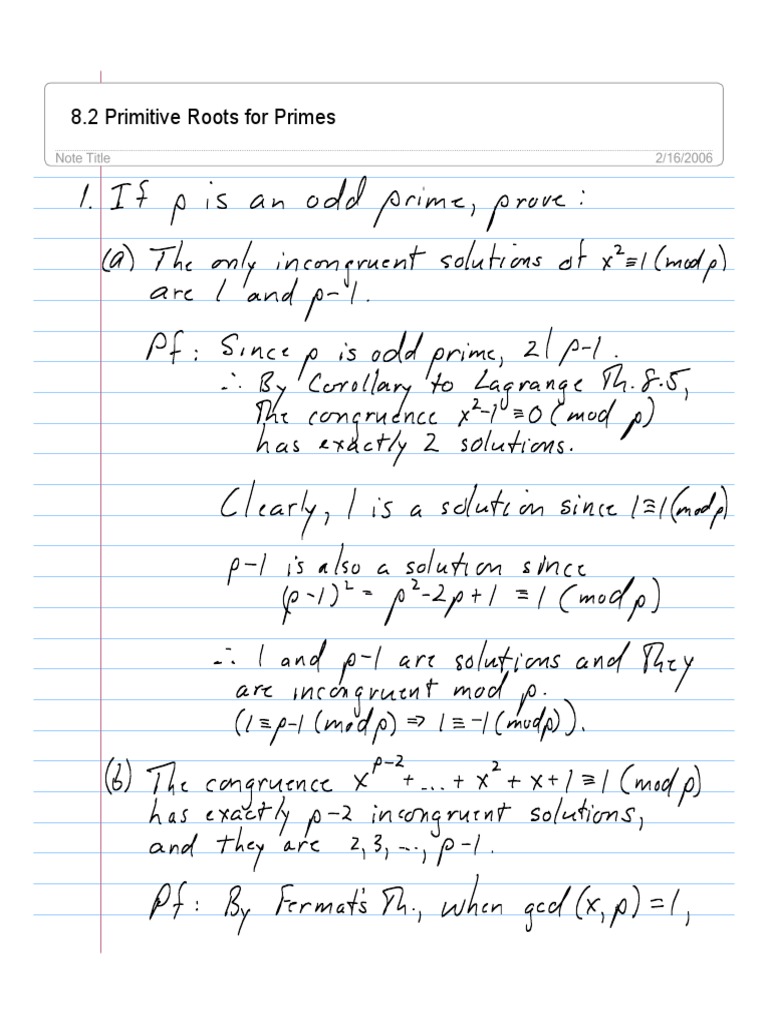 8.2 Primitive Roots for Primes
Note Title 2/16/2006
1. If p is an odd prime, prove:
(a) The only incongruent solutions of x²≡1 (mod p)
are 1 and p-1.
Pf: Since p is odd prime, 2 | p-1.
∴ By Corollary to Lagrange Th. 8.5,
The congruence x²-1≡0 (mod p)
has exactly 2 solutions.
Clearly, 1 is a solution since 1≡1 (mod p)
p-1 is also a solution since
(p-1)² = p²-2p+1 ≡ 1 (mod p)
∴ 1 and p-1 are solutions and They
are incongruent mod p.
(1≡p-1 (mod p) ⇒ 1≡-1 (mod p)).
(b) The congruence x^{p-2}+...+x²+x+1≡1 (mod p)
has exactly p-2 incongruent solutions,
and they are 2, 3, ..., p-1.
Pf: By Fermat's Th., when gcd (x, p) = 1,